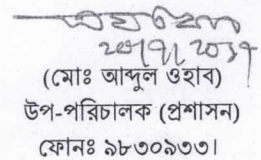 (মোঃ আব্দুল ওহাব)
উপ-পরিচালক (প্রশাসন)
ফোনঃ ৯৮৩০৯৩৩।